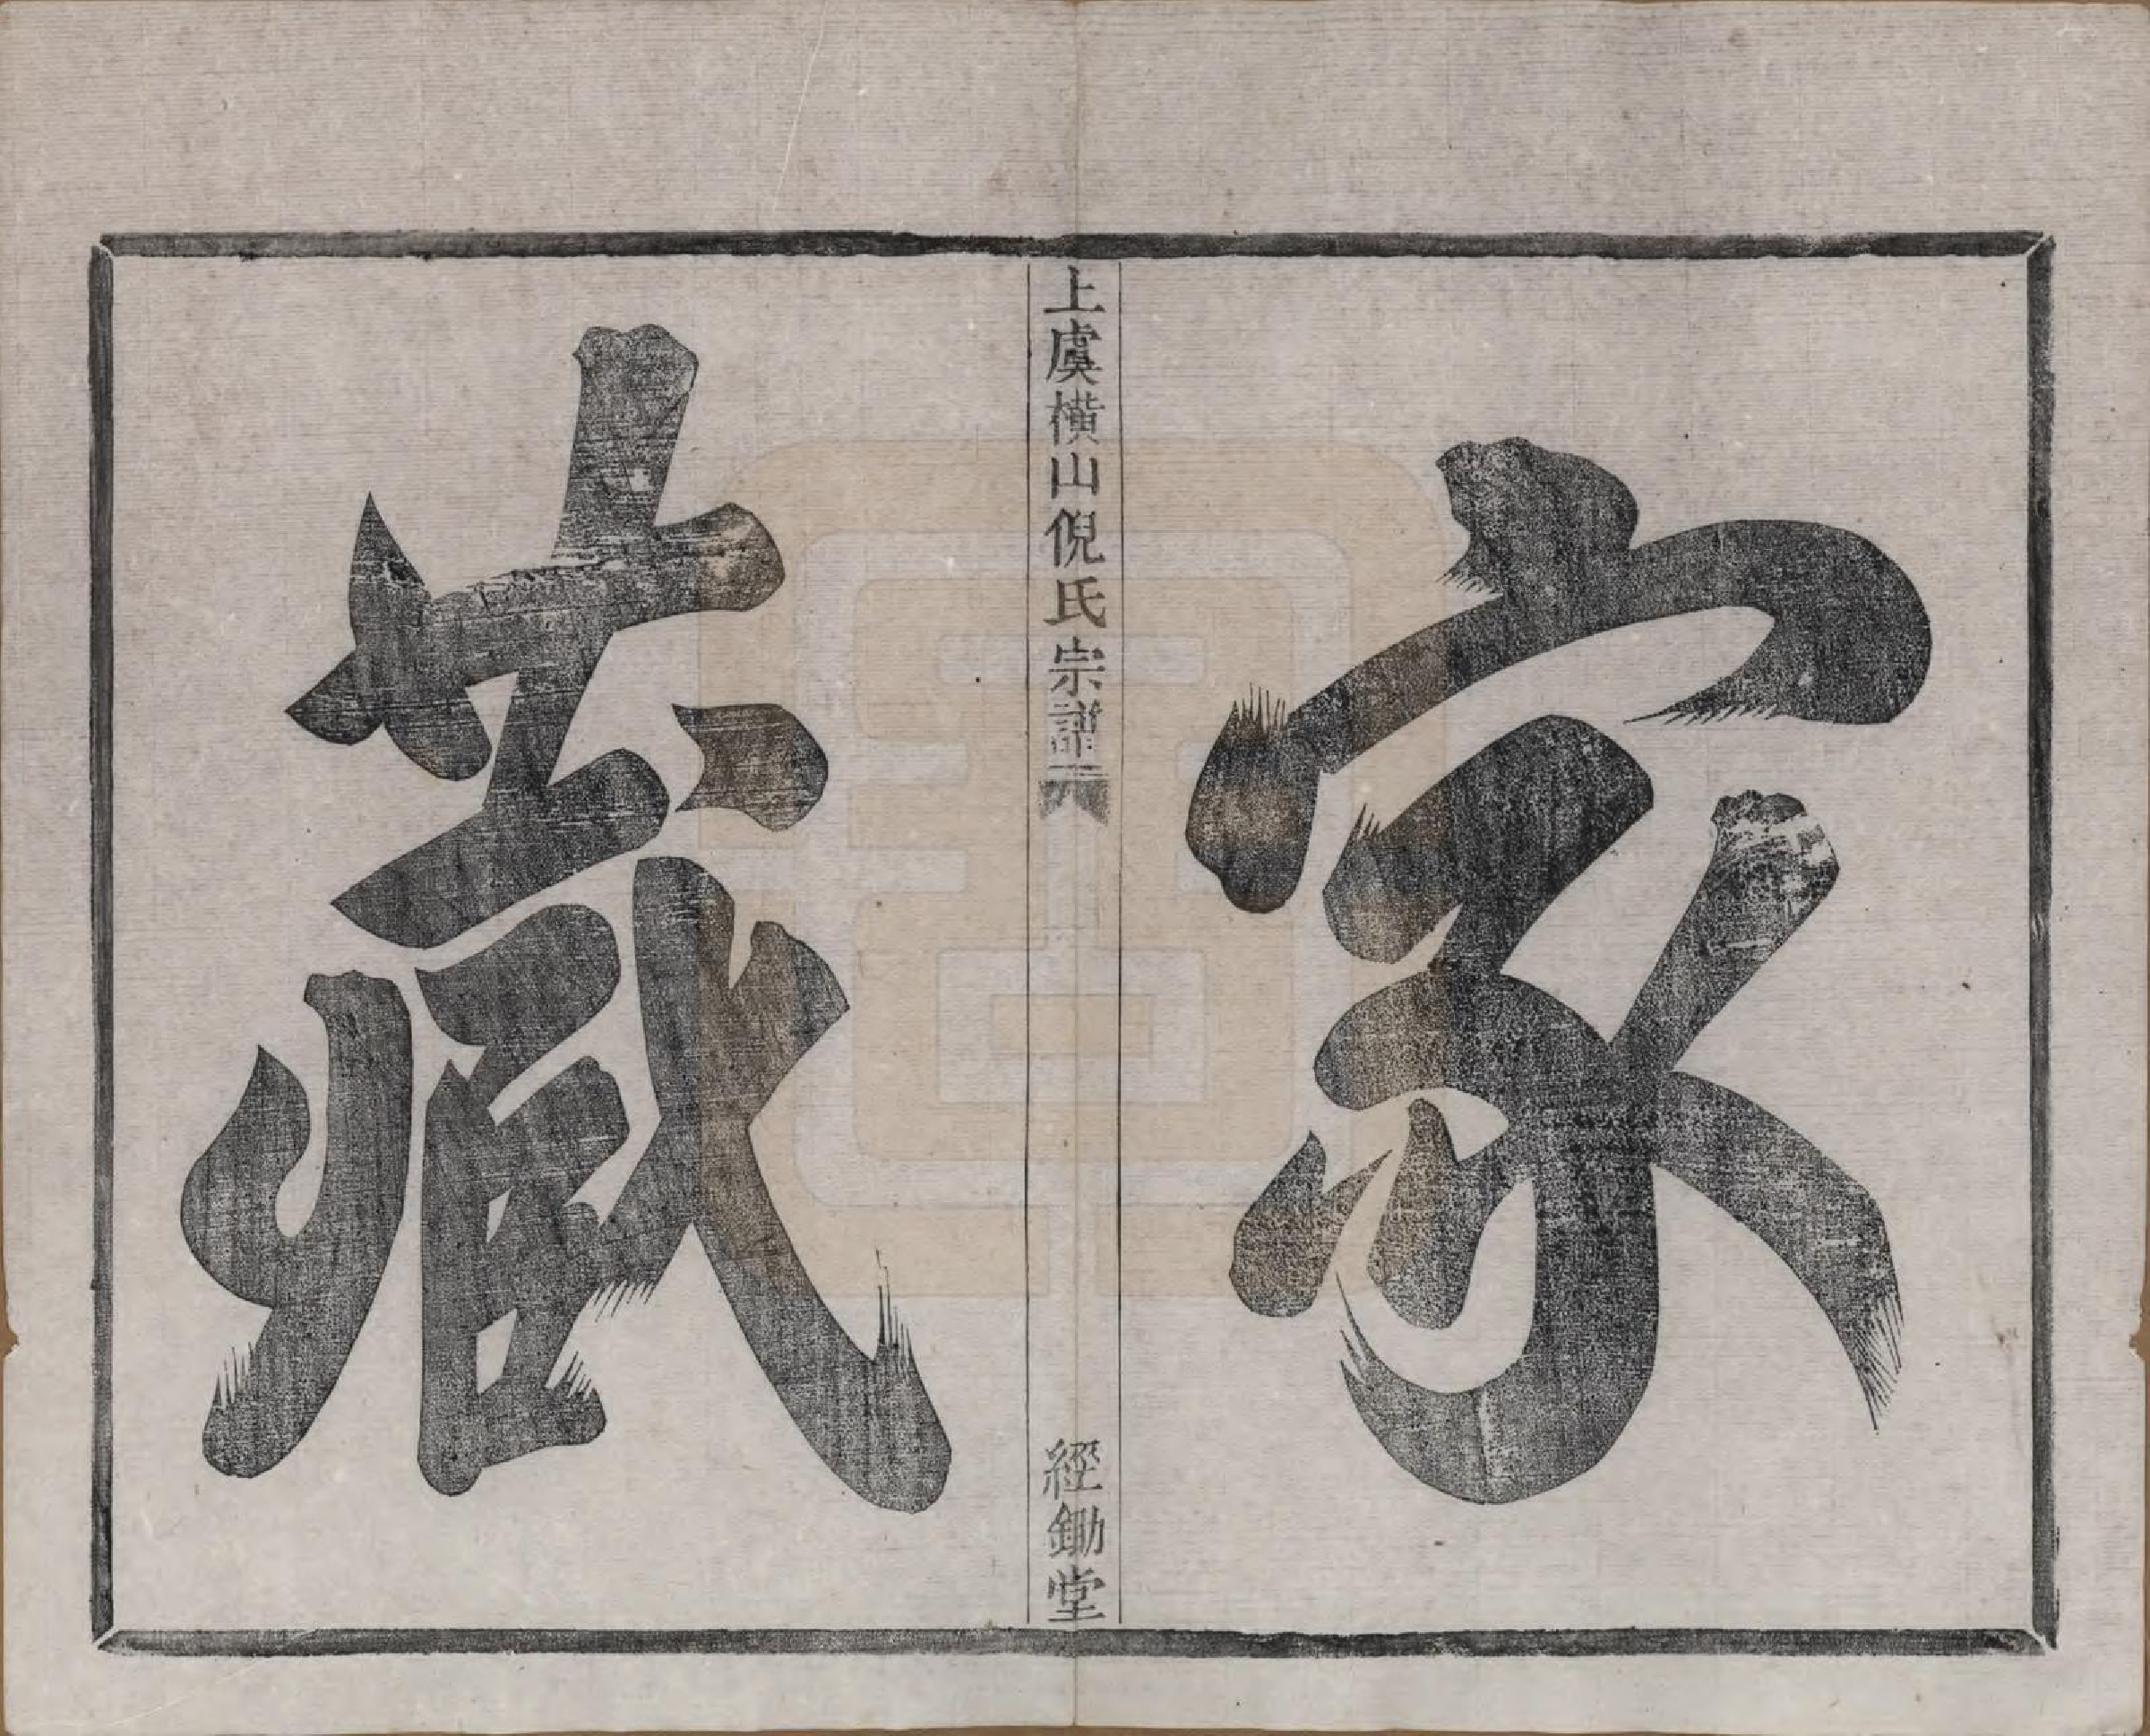 家
上虞橫山倪氏宗譜
經鋤堂
藏